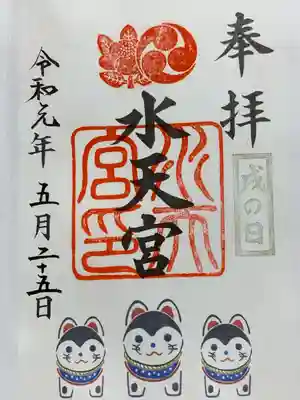 奉拝
戌の日
水天宮
水天宮印
令和元年 五月二十五日